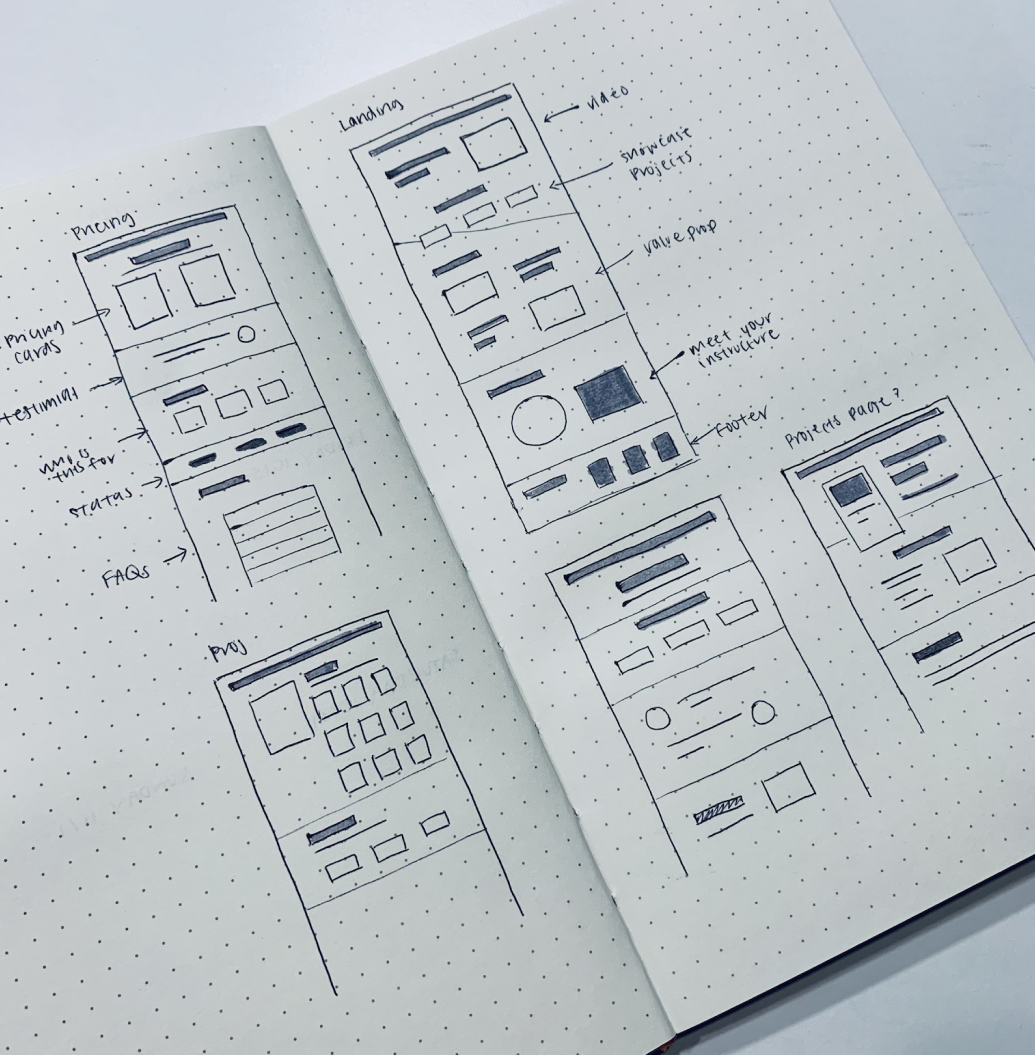 Pricing
Pricing
cards
testimials
who is
this for
statas
FAQs
Proj
Landing
video
showcase
projects
value prop
meet your
instructure
Footer
Projects page?